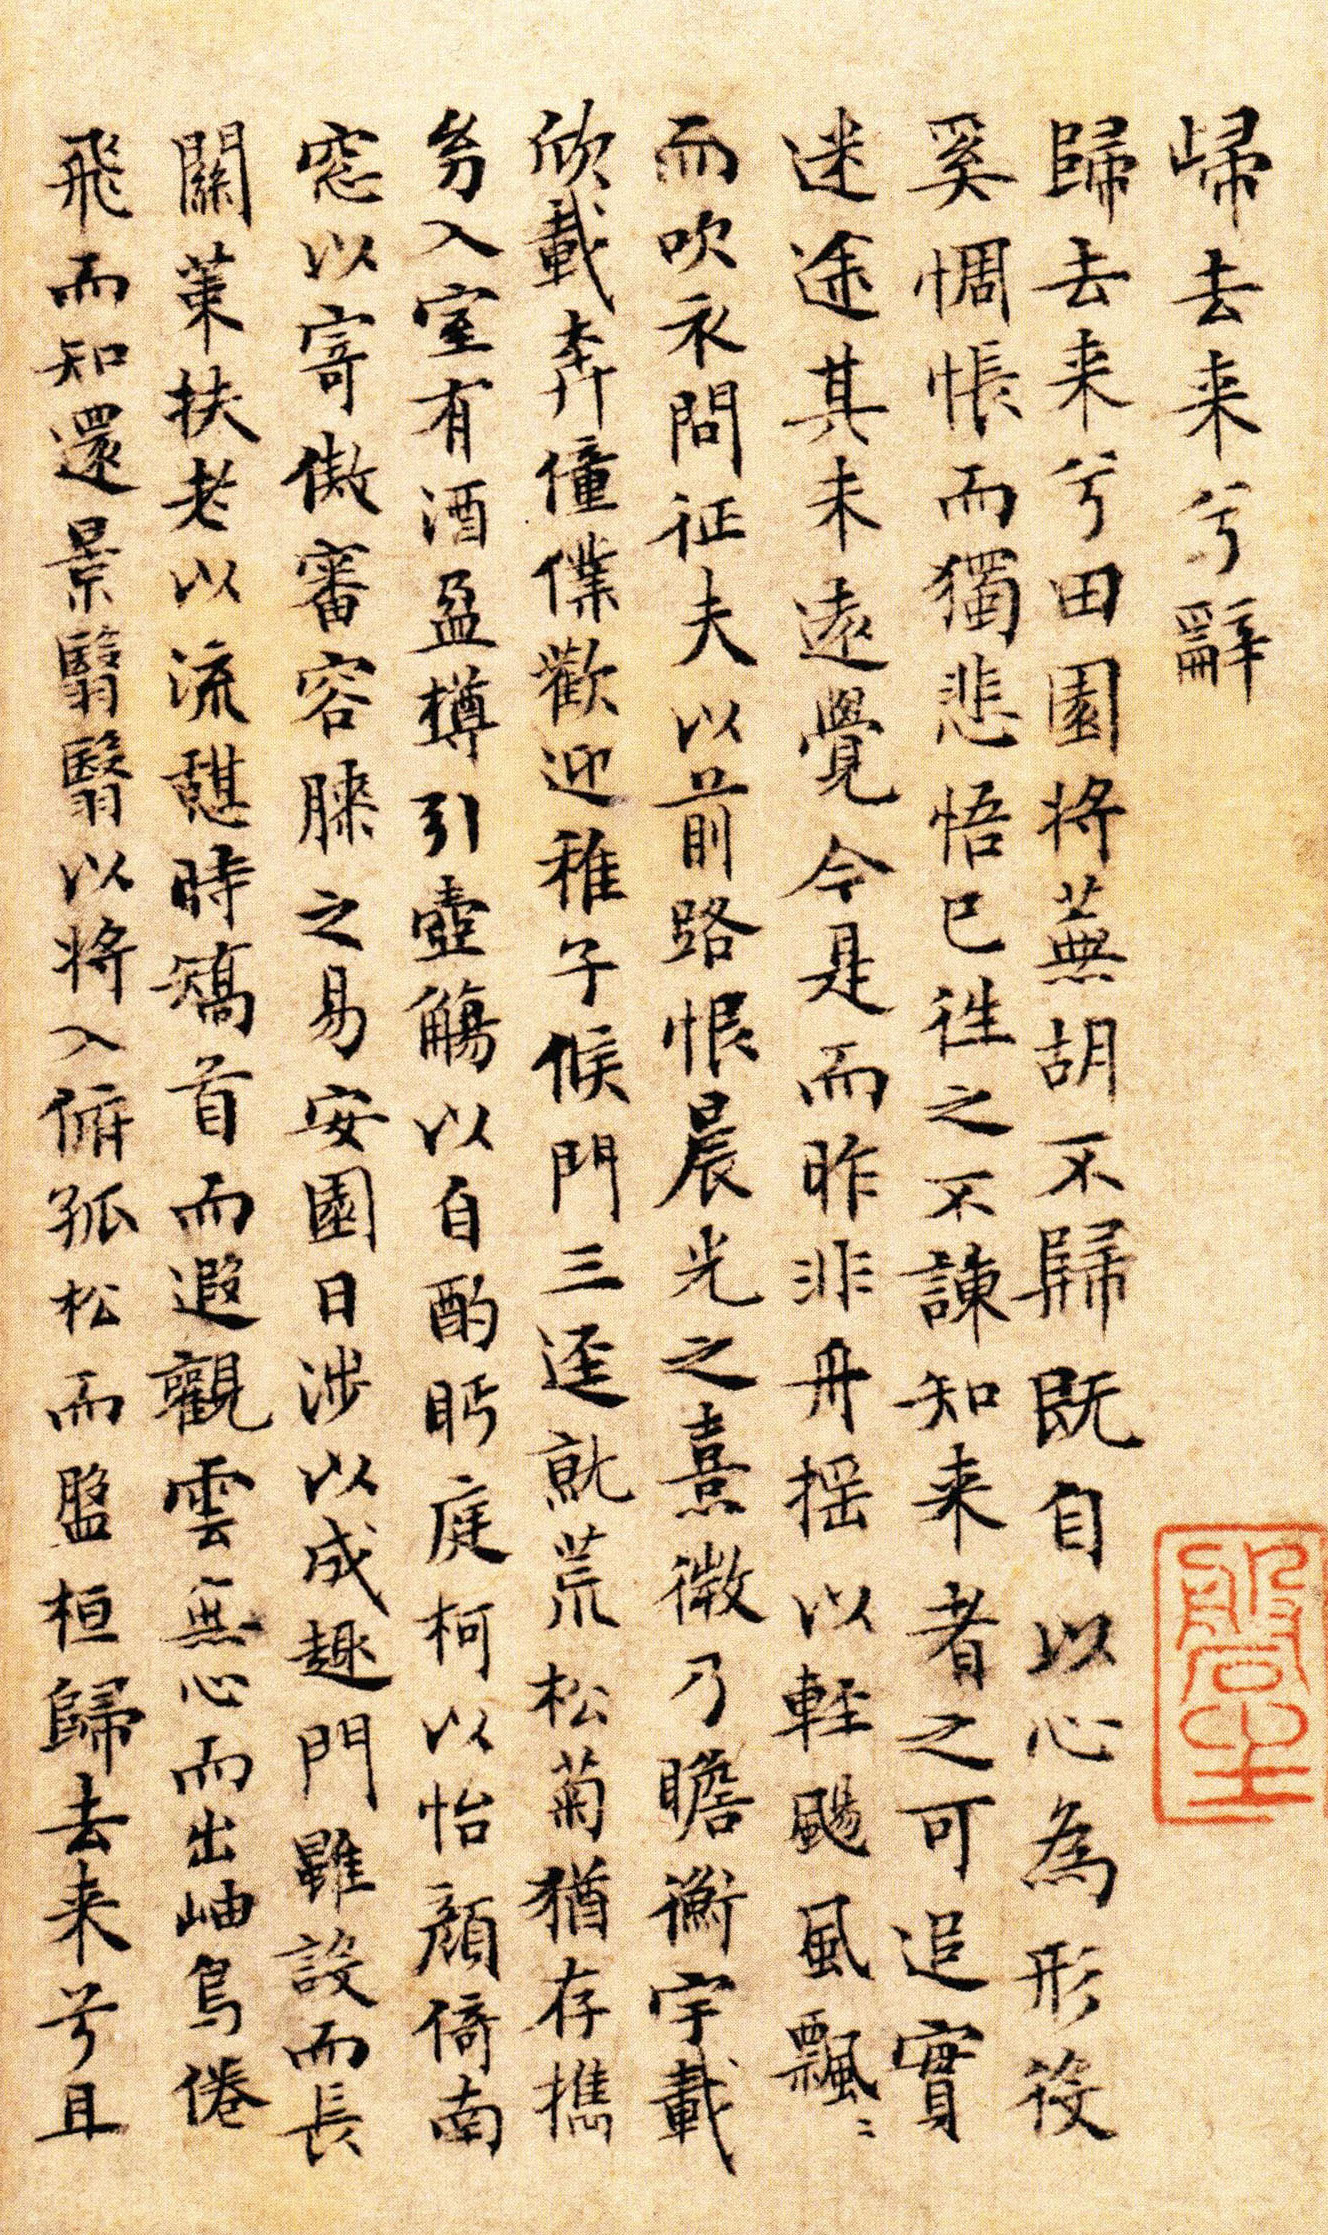 㱕去来兮辭
歸去来兮田園将蕪胡不歸既自以心為形役
奚惆悵而獨悲悟已徃之不諫知来者之可追實
迷途其未遠覺今是而昨非舟揺以軽颺風飄〻
而吹衣問征夫以前路恨晨光之熹微乃瞻衡宇載
欣載奔僮僕歡迎稚子候門三逕就荒松菊猶存攜
幼入室有酒盈樽引壺觴以自酌眄庭柯以怡顏倚南
窓以寄傲審容膝之易安園日涉以成趣門雖設而長
關策扶老以流憩時矯首而遐觀雲無心而出岫鳥倦
飛而知還景翳翳以将入俯孤松而盤桓歸去来兮且